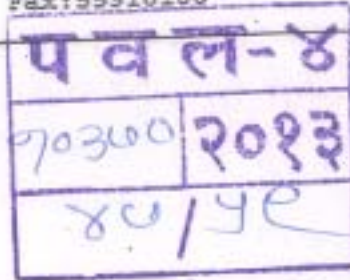 पवल-४
१०३७० २०१३
४७/५९